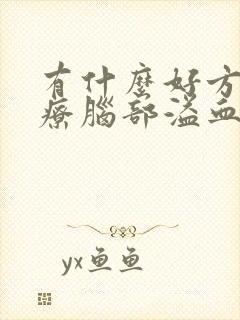 有什麼好方
療腦部溢血
yx鱼鱼